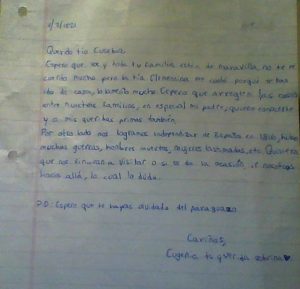 1/7/1821
Querido tio Eusebio
Espero que vos y toda tu familia esten de maravilla, no te
escribo mucho pero la tia Clementina me contó porque se han
ido de casa, lo lamento mucho. Espero que arreglen las cosas
entre nuestras familias, en especial mi padre, quiero conocerte
y a mis queridas primas también.
Por otro lado nos logramos independizar de España en 1816, hubo
muchas guerras, hombres muertos, mujeres lastimadas, etc. Quisiera
que nos vinieran a visitar o si se da la ocasion, ir nosotros
hacia allá, lo cual lo dudo.
P.D: Espero que te hayas olvidado del paraguazo
Cariños,
Eugenia tu querida sobrina